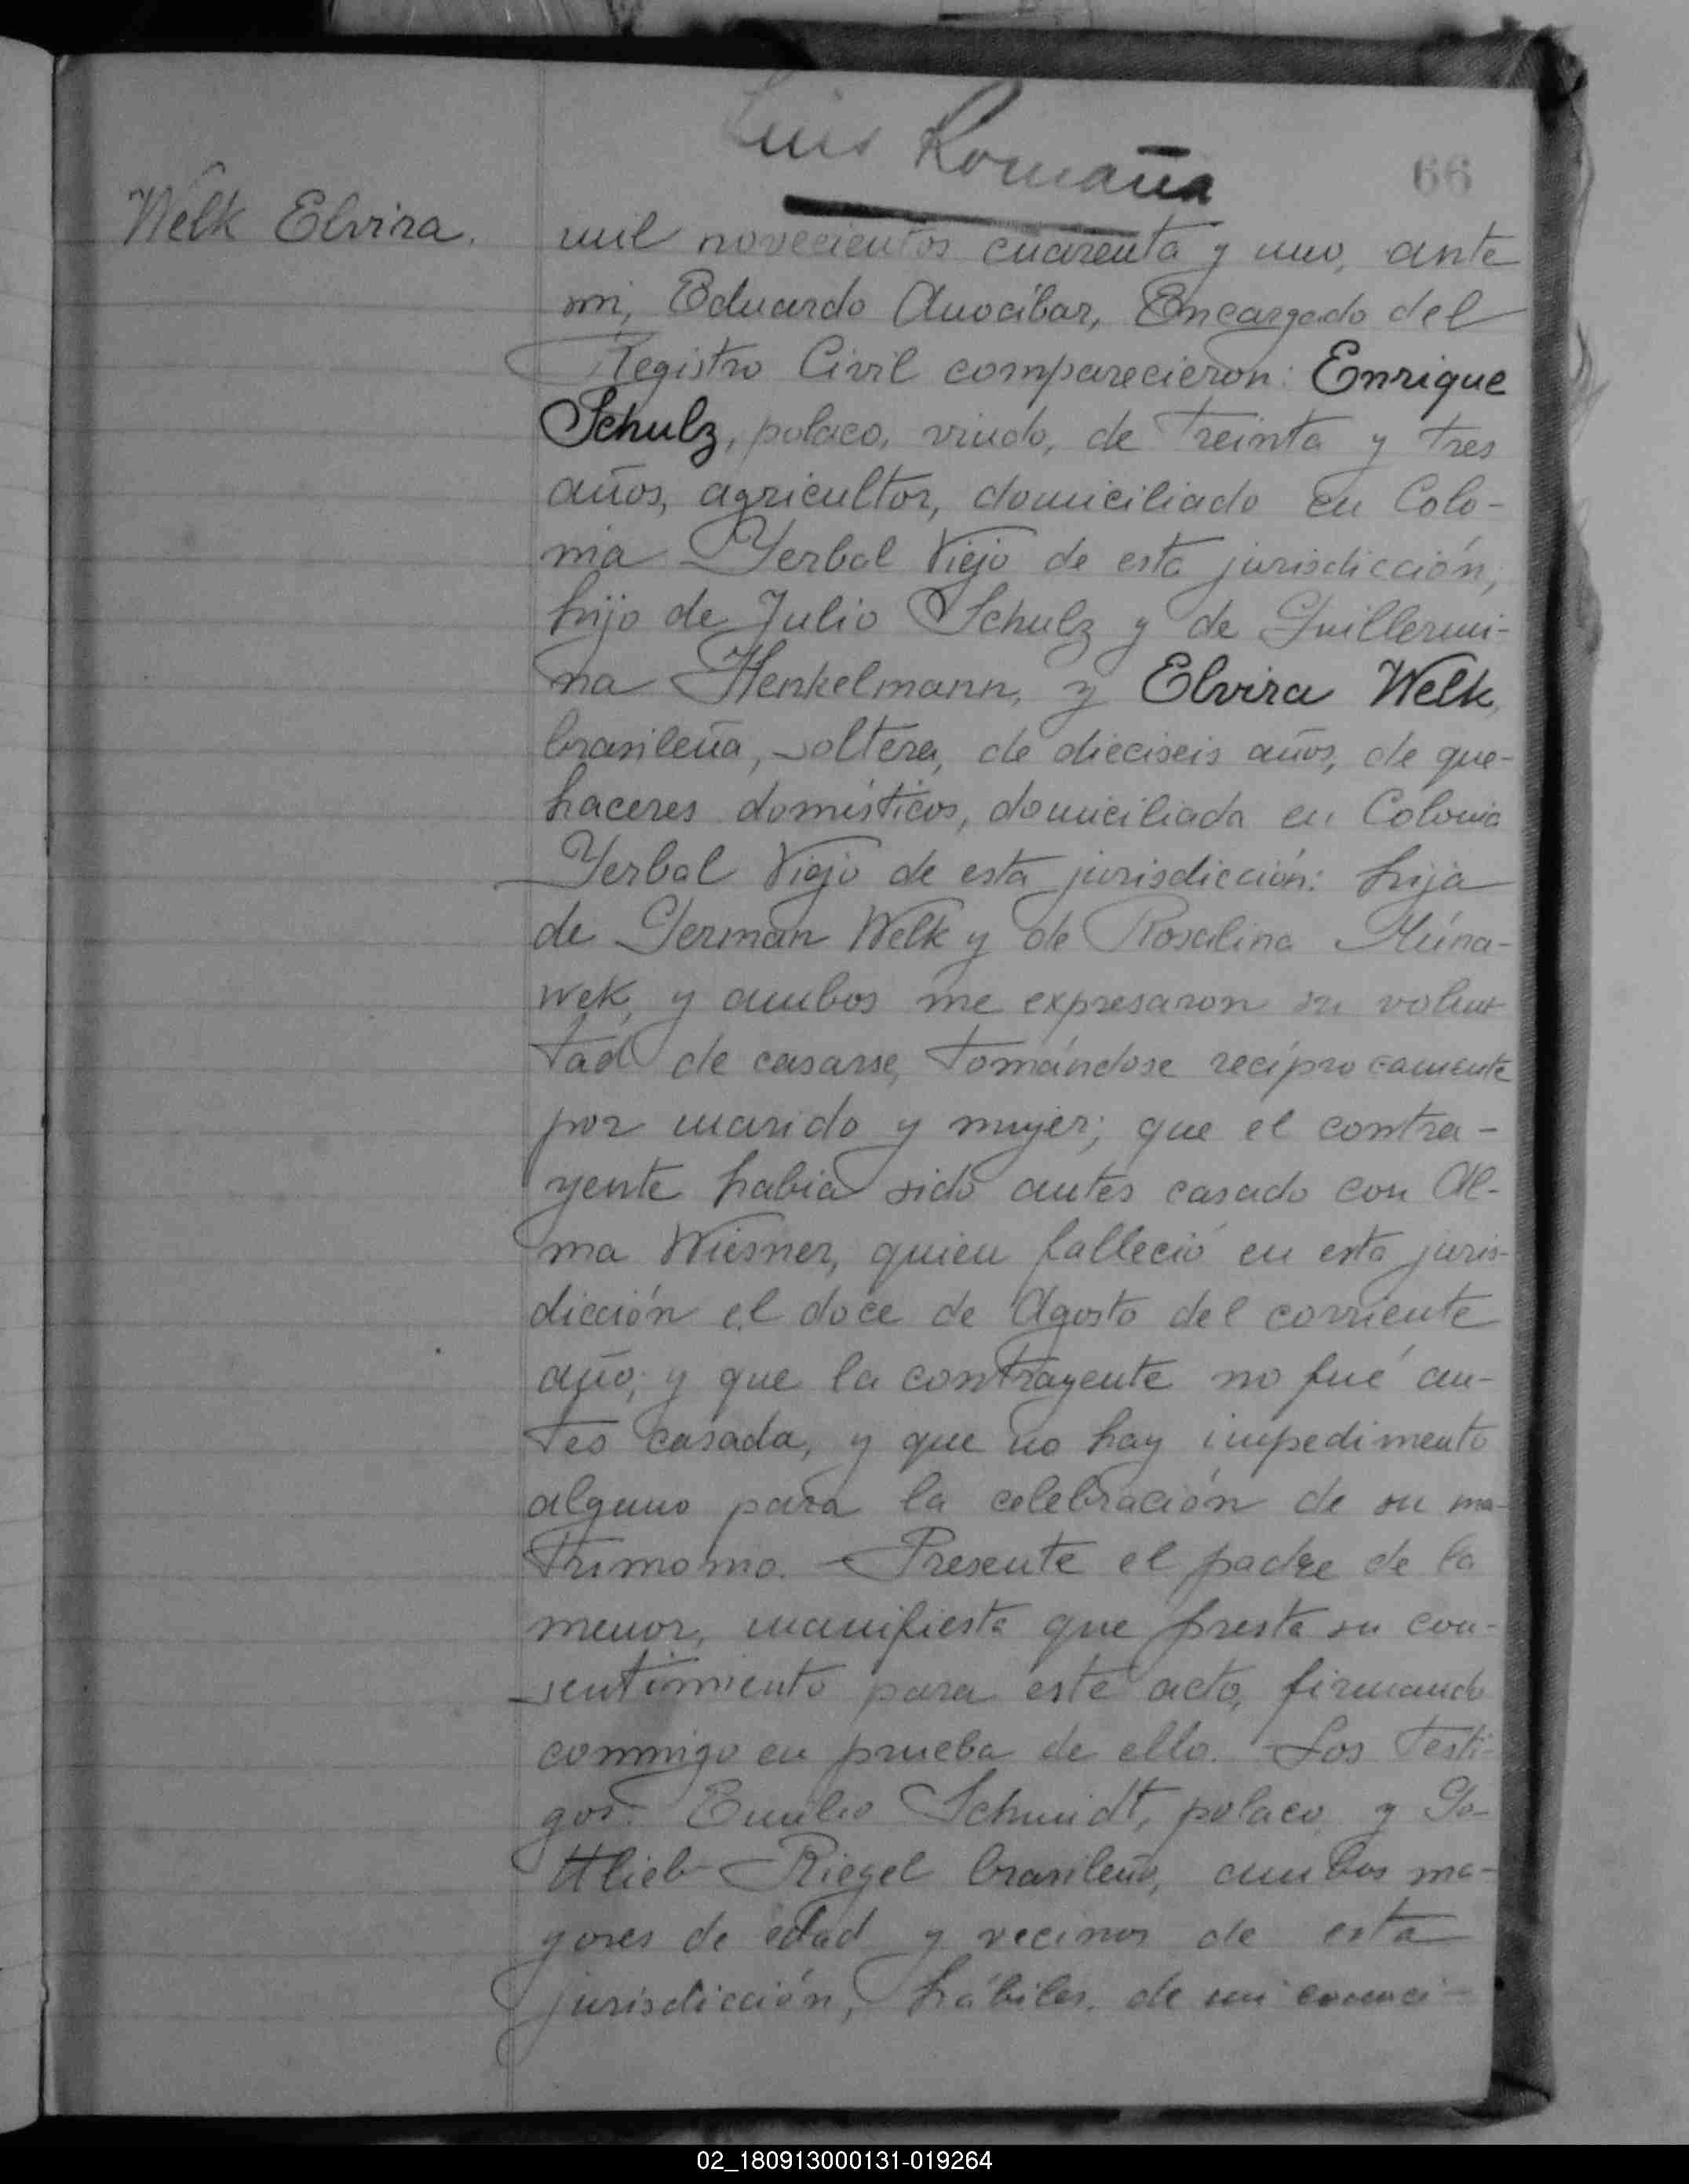 Luis Romaña
66
Welk Elvira.
mil novecientos cuarenta y uno, ante
mi, Eduardo Anocibar, Encargado del
Registro Civil comparecieron: Enrique
Schulz, polaco, viudo, de treinta y tres
años, agricultor, domiciliado en Colo-
nia Yerbal Viejo de esta jurisdicción,
hijo de Julio Schulz y de Guillermi-
na Henkelmann, y Elvira Welk,
brasileña, soltera, de dieciseis años, de que-
haceres domésticos, domiciliada en Colonia
Yerbal Viejo de esta jurisdicción: hija
de German Welk y de Rosalina Múna-
wek, y ambos me expresaron su volun-
tad de casarse, tomándose recíprocamente
por marido y mujer; que el contra-
yente habia sido antes casado con Al-
ma Wiesner, quien falleció en esta juris-
dicción el doce de Agosto del corriente
año; y que la contrayente no fué an-
tes casada, y que no hay impedimento
alguno para la celebración de su ma-
trimonio. - Presente el padre de la
menor, manifiesta que presta su con-
sentimiento para este acto, firmando
conmigo en prueba de ello. Los testi-
gos: Emilio Schmidt, polaco y Go-
ttlieb Riegel brasileño, ambos ma-
yores de edad y vecinos de esta
jurisdicción, hábiles, de mi conoci-
02_180913000131-019264